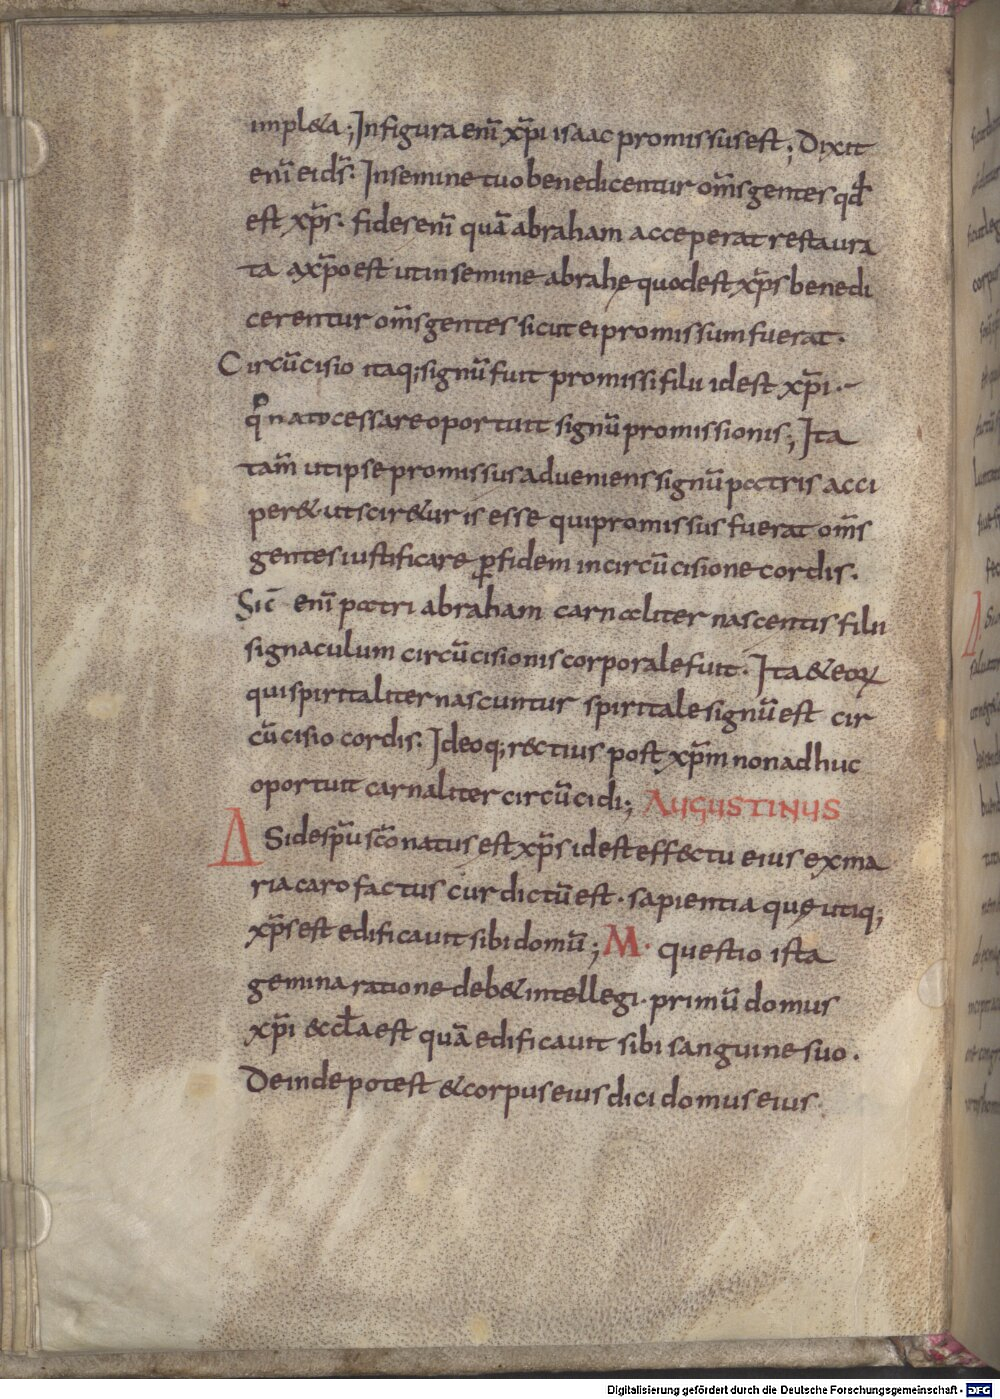 impl&a; In figura enī xp̄i isaac promissus est; Dixit
enī ei d̄s. In semine tuo benedicentur om̄s gentes qd̄
est xp̄s. fides enī quā abraham acceperat restaura
ta a xp̄o est ut in semine abrahę quod est xp̄s benedi
cerentur om̄s gentes sicut ei promissum fuerat.
Circūcisio itaq; signū fuit promissi filii id est xp̄i.
q̊ nato cessare oportuit signū promissionis; Ita
tam̄ ut ipse promissus adveniens signū patris acci
per& ut scir&ur is esse qui promissus fuerat om̄s
gentes iustificare ꝑ fidem in circūcisione cordis.
Sic̄ enī patri abraham carnaliter nascentis filii
signaculum circūcisionis corporale fuit. Ita & eoꝝ
qui spiritaliter nascuntur spiritale signū est cir
cūcisio cordis. Ideoq; rectius post xp̄m non adhuc
oportuit carnaliter circūcidi; AUGUSTINUS
A Si de sp̄u sc̄o natus est xp̄s id est effectu eius ex ma
ria caro factus cur dictū est. sapientia quę utiq;
xp̄s est edificavit sibi domū; M. questio ista
gemina ratione deb& intellegi. primū domus
xp̄i &ccl̄a est quā edificavit sibi sanguine suo.
Deinde potest & corpus eius dici domus eius.
Digitalisierung gefördert durch die Deutsche Forschungsgemeinschaft - DFG